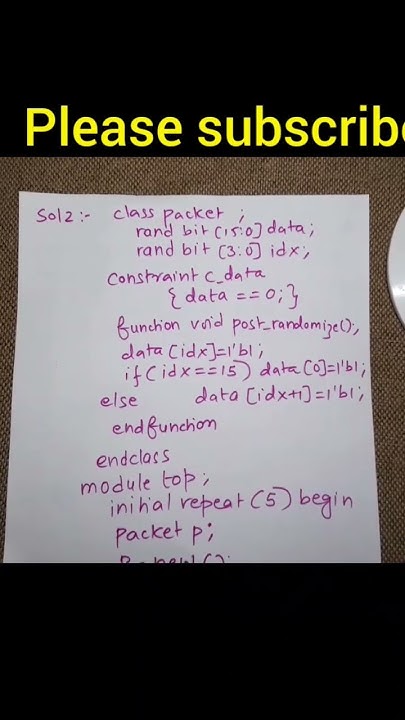 Please subscribe
Sol2:- class packet ;
rand bit [15:0] data;
rand bit [3:0] idx;
constraint c_data
{ data == 0; }
function void post_randomize();
data [idx]=1'b1;
if (idx==15) data [0]=1'b1;
else data [idx+1]=1'b1;
endfunction
endclass
module top;
initial repeat (5) begin
packet p;